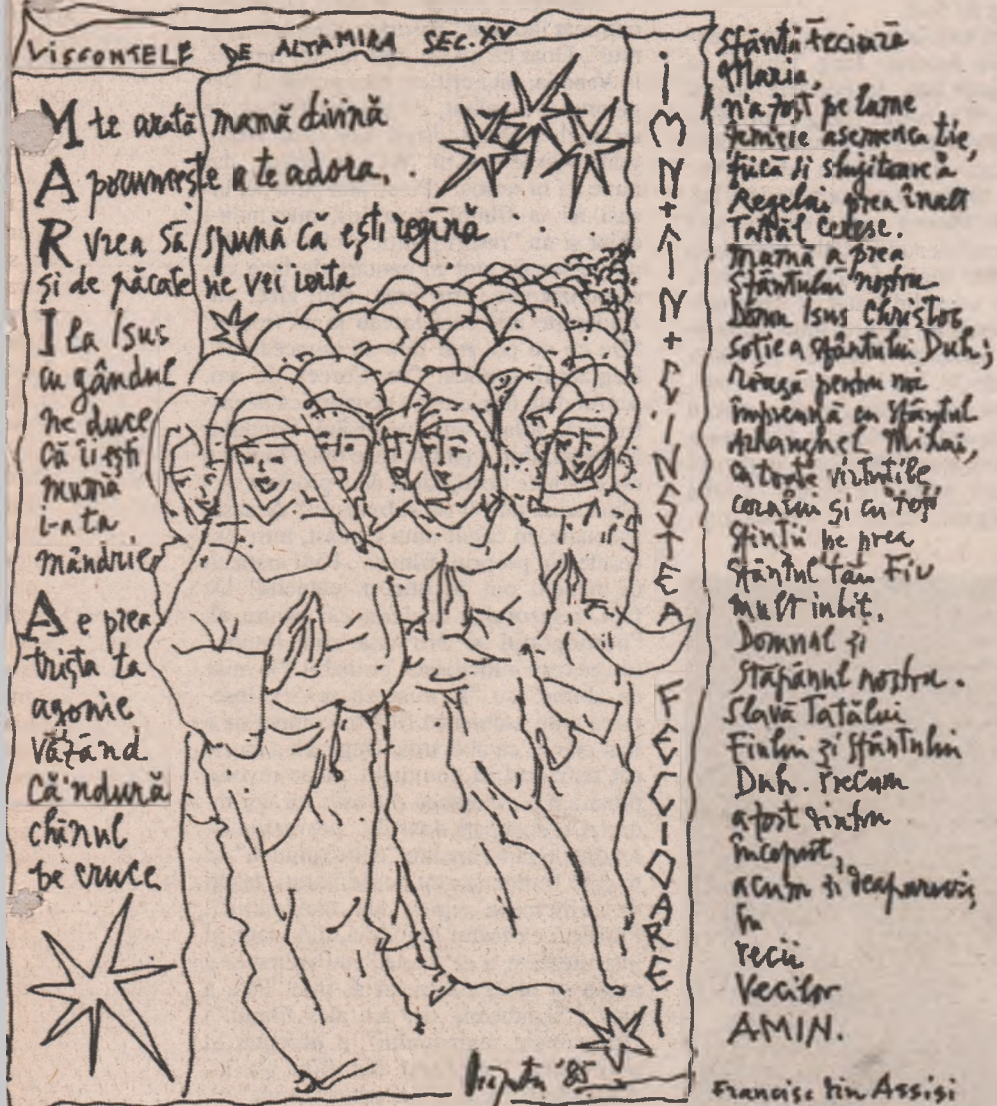 VISCONTELE DE ALTAMIRA SEC. XV
M te arată mamă divină
A poruncește a te adora,
R vrea să spună că ești regină
și de păcate ne vei ierta
I la Isus
cu gândul
ne duce
Că îi ești
mumă
i-a ta
mândrie
A e prea
trista ta
agonie
văzând
Că 'ndură
chinul
pe cruce
IMN ÎN CINSTEA FECIOAREI
Sfântă Fecioară
Maria,
n'a fost pe lume
femeie asemenea ție,
fiică și slujitoare a
Regelui prea înalt
Tatăl Ceresc.
mamă a prea
Sfântului nostru
Domn Isus Christos
soție a sfântului Duh;
roagă pentru noi
împreună cu sfântul
Arhanghel Mihai,
cu toate virtuțile
cerului și cu toți
sfinții pe prea
sfântul tău Fiu
mult iubit.
Domnul și
Stăpânul nostru.
Slavă Tatălui
Fiului și sfântului
Duh. Precum
a fost dintru
început,
acum și deapururi,
în
vecii
Vecilor
AMIN.
Francisc din Assisi
'85